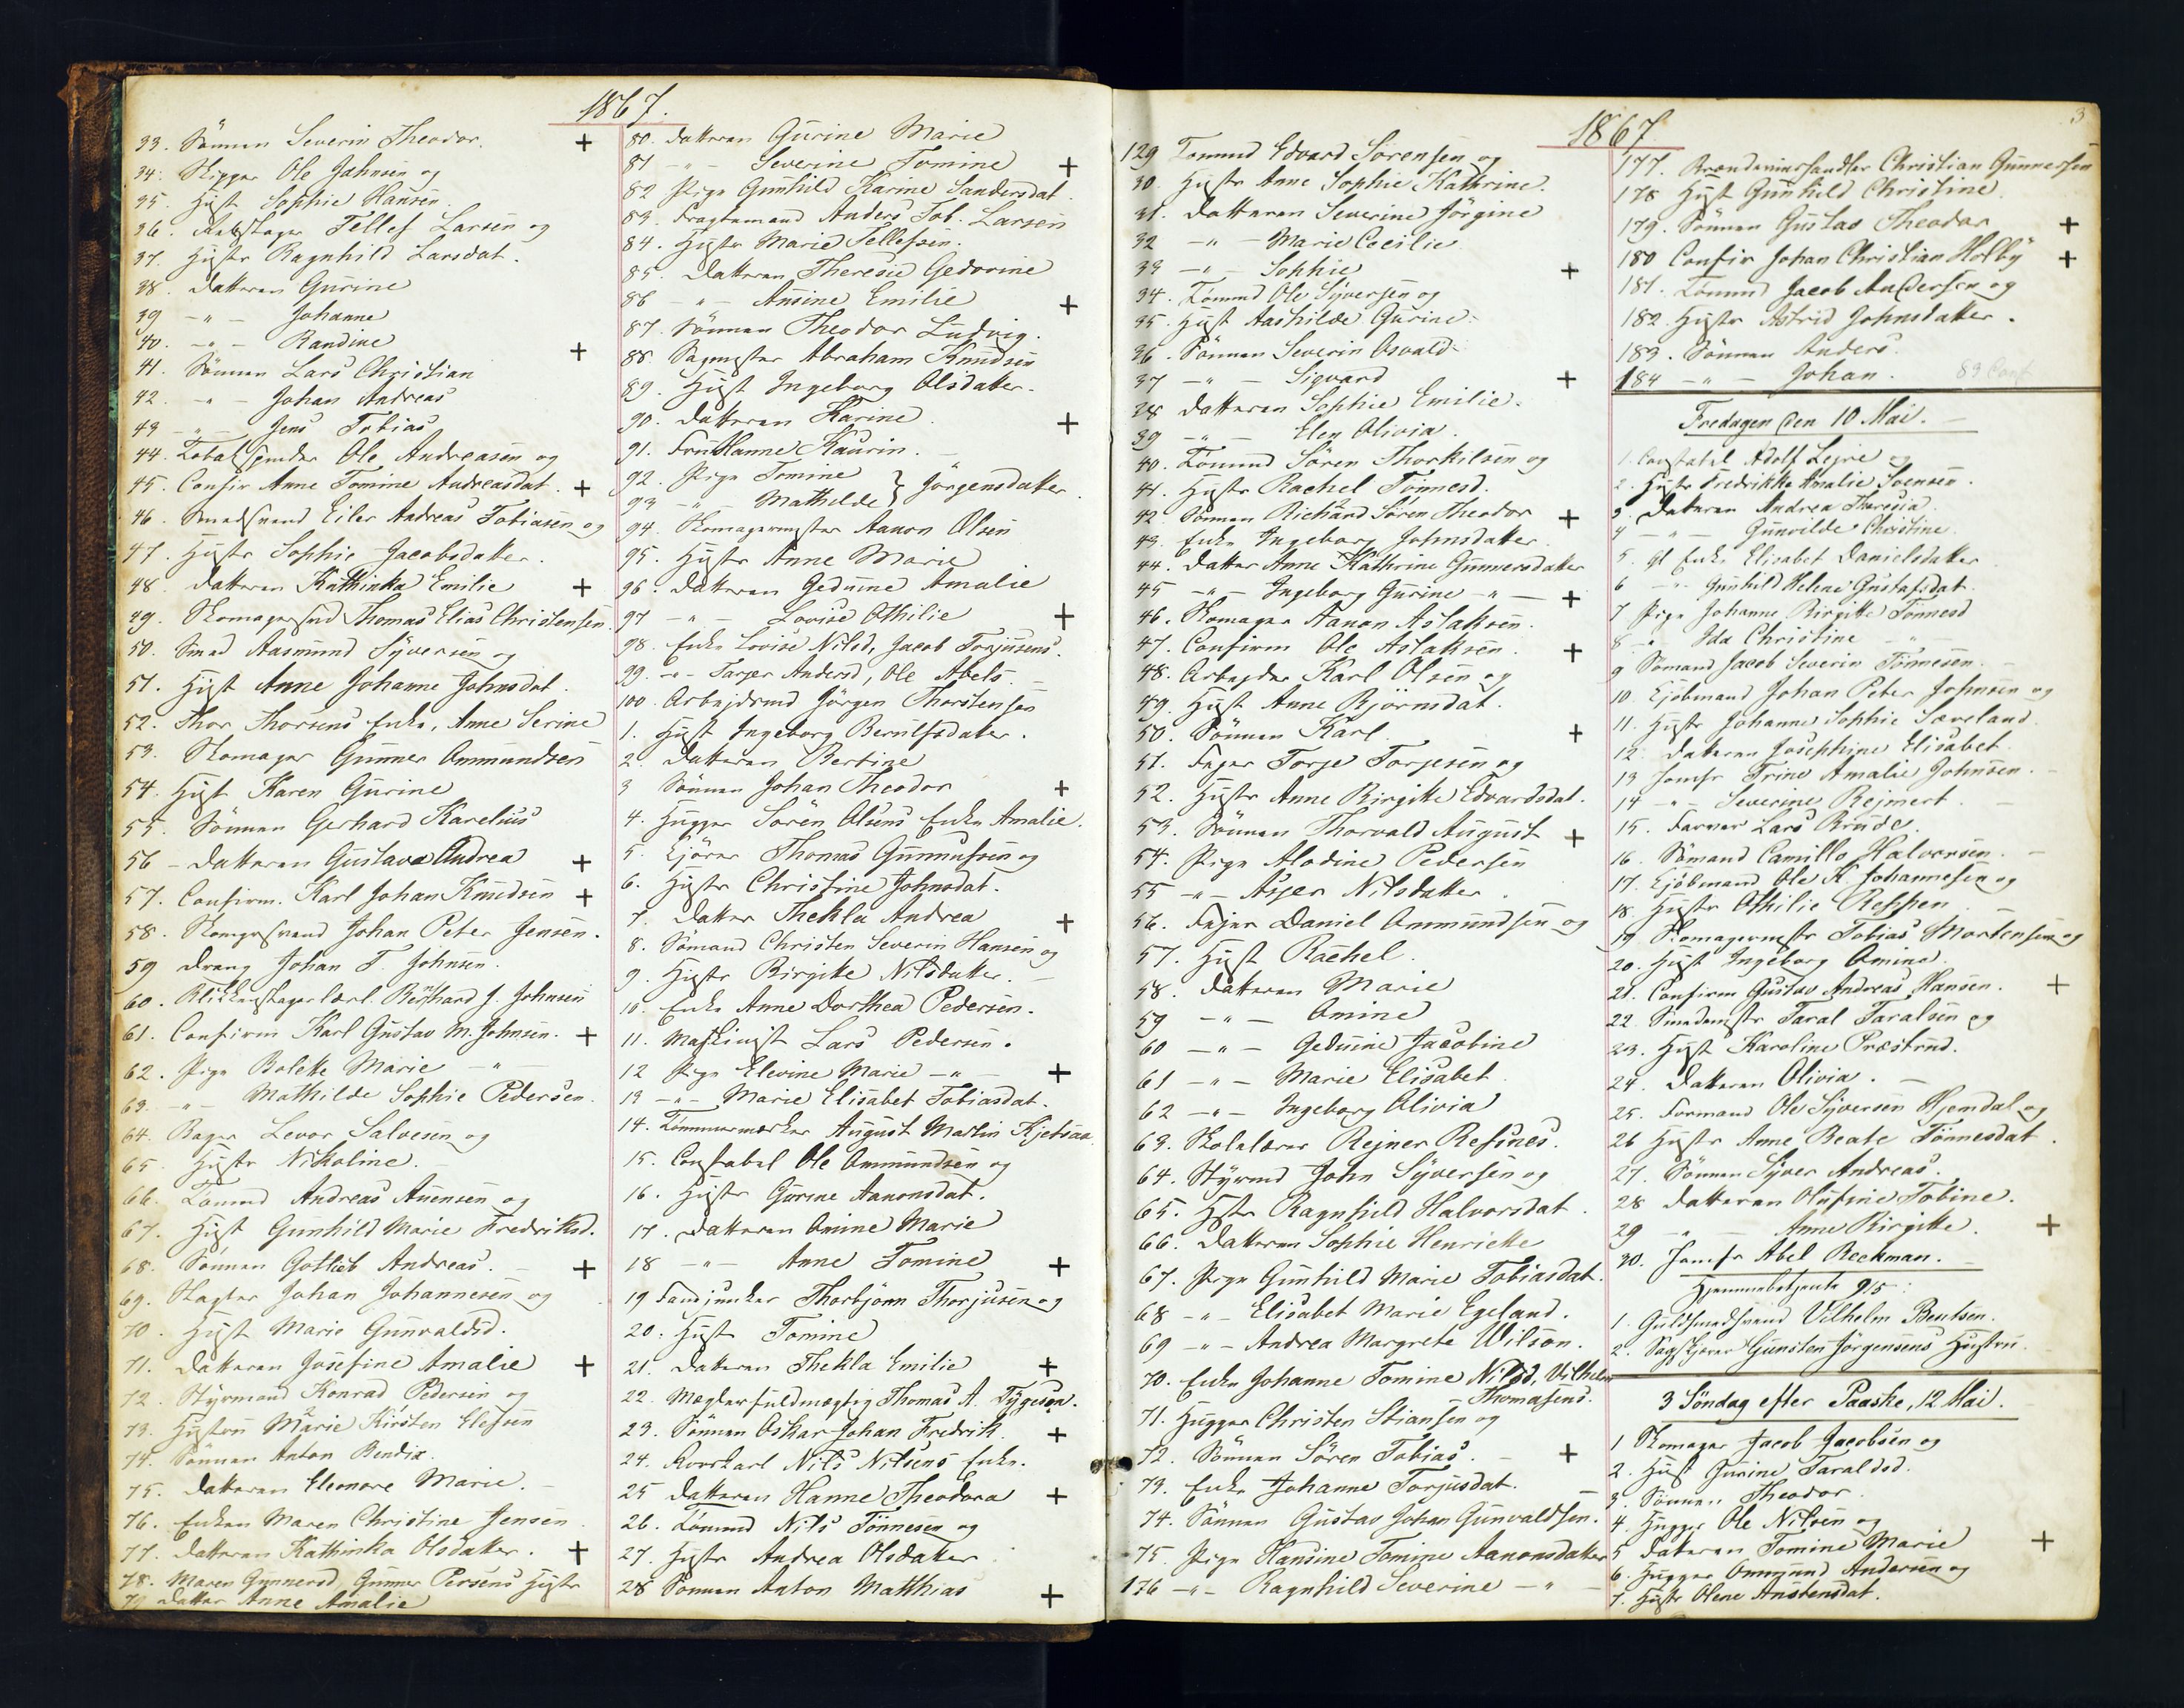 1867.
33. Sønnen Severin Theodor. +
34. Skipper Ole Johnsen og
35. Hust Sophie Hansen.
36. Rebslager Tellef Larsen og
37. Hustr Ragnhild Larsdat.
38. Datteren Gurine
39 -"- Johanne
40. -"- Randine +
41. Sønnen Lars Christian
42. -"- Johan Andreas
43 -"- Jens Tobias
44. Tobakspinder Ole Andreasen og
45. Confir Anne Tomine Andreasdat. +
46. Smedsvend Eiler Andreas Tobiasen og
47. Hustr Sophie Jacobsdatter.
48. Datteren Kathinka Emilie +
49. Skomagersvd Thomas Elias Christensen
50. Smed Aasmund Syversen og
51. Hust Anne Johanne Johnsdat.
52. Thor Thorsens Enke, Anne Serine
53. Skomager Gunner Ommundsen
54. Hust Karen Gurine
55. Sønnen Gerhard Karelius
56 - Datteren Gustava Andrea +
57. Confirm. Karl Johan Knudsen +
58. Skomgrsvend Johan Peter Jensen.
59 Dreng Johan T. Johnsen.
60. Blikkenslagerlærl. Bernhard J. Johnsen
61. Confirm Karl Gustav M. Johnsen. +
62. Pige Bolette Marie -"-
63. -"- Mathilde Sophie Pedersen.
64. Bager Levor Salvesen og
65. Hustr Nikoline.
66. Tømmd Andreas Auensen og
67. Hust Gunhild Marie Fredriksd.
68. Sønnen Gottlieb Andreas. +
69. Slagter Johan Johannesen og
70. Hust Marie Gunvaldsd.
71. Datteren Josefine Amalie +
72. Styrmand Konrad Pedersen og
73. Hustru Marie Kirsten Elefsen
74. Sønnen Anton Bendix.
75. Datteren Eleonore Marie.
76. Enken Maren Christine Jensen
77. Datteren Kathinka Olsdatter. +
78. Maren Gunnersd, Gunner Persens Hustr
79 Datter Anne Amalie
80. Datteren Gurine Marie
81 -"- Severine Tomine +
82 Pige Gunhild Karine Sandersdat.
83. Fragtemand Anders Tob. Larsen
84. Hustr Marie Tellefsen.
85. Datteren Theresie Gedorine
86 -"- Ansine Emilie +
87. Sønnen Theodor Ludvig.
88. Sagmester Abraham Knudsen
89. Hust Ingeborg Olsdatter.
90. Datteren Karine. +
91. Fru Hanne Kaurin.
92. Pige Tomine } Jørgensdatter.
93 -"- Mathilde
94. Skomagermester Aanon Olsen
95. Hustr Anne Marie
96. Datteren Geduine Amalie
97 -"- Lovise Othilie +
98. Enke Lovise Nilsd, Jacob Torjusens.
99. -"- Tarjer Andersd, Ole Abels.
100. Arbejdsmd Jørgen Thorstensen
1. Hust Ingeborg Berulfsdatter.
2. Datteren Bertine
3 Sønnen Johan Theodor +
4. Hugger Søren Olsens Enke Amalie.
5. Kjører Thomas Gunnufsen og
6. Hustr Christine Johnsdat.
7. Datter Thekla Andrea +
8. Sømand Christen Severin Hansen og
9. Hustr Birgitte Nilsdatter.
10. Enke Anne Dorthea Pedersen.
11. Maskinist Lars Pedersen.
12 Pige Elevine Marie -"- +
13 -"- Marie Elisabet Tobiasdat.
14. Tømmermærker August Martin Kjetsaa.
15. Constabel Ole Ommundsen og
16. Hustr Gurine Aanonsdat.
17. Datteren Omine Marie
18 -"- Anne Tomine +
19 Fandjunker Thorbjörn Thorjusen og
20. Hust Tomine
21. Datteren Thekla Emilie +
22. Mæglerfuldmægtig Thomas A. Tygesen.
23. Sønnen Oskar Johan Fredrik. +
24. Rorskarl Nils Nilsens Enke.
25 Datteren Hanne Theodora +
26. Tømmd Nils Tønnesen og
27. Hustr Andrea Olsdatter
28 Sønnen Anton Matthias +
1867
3
129 Tommd Edvard Sørensen og
30. Hustr Anne Sophie Kathrine.
31. Datteren Severine Jørgine
32 -"- Marie Cecilie
33 -"- Sophie +
34. Tømmd Ole Syversen og
35. Hust Aashilde Gurine.
36. Sønnen Severin Osvald
37 -"- Sigvard +
38 Datteren Sophie Emilie.
39 -"- Elen Olivia.
40. Tømmd Søren Thorkilsen og
41. Hustr Rachel Tønnesd.
42 Sønnen Richard Søren Theodor +
43. Enke Ingeborg Johnsdatter.
44. Datter Anne Kathrine Gunnersdatter
45 -"- Ingeborg Gurine -"- +
46. Skomager Aanon Aslaksen.
47. Confirm Ole Aslaksen. +
48. Arbejder Karl Olsen og
49. Hust Anne Bjørnsdat.
50. Sønnen Karl. +
51. Fejer Torje Torjesen og
52. Hustr Anne Birgitte Edvardsdat.
53. Sønnen Thorvald August +
54. Pige Alodine Pedersen
55 -"- Asjer Nilsdatter.
56. Fejer Daniel Ommundsen og
57. Hust Rachel.
58. Datteren Marie
59 -"- Omine
60 -"- Geduine Jacobine
61 -"- Marie Elisabet
62 -"- Ingeborg Olivia
63. Skolelærer Rejner Refsnes.
64. Styrmd John Syversen og
65. Hstr Ragnhild Halvorsdat.
66. Datteren Sophie Henriette
67. Pige Gunhild Marie Tobiasdat.
68 -"- Elisabet Marie Egeland.
69 -"- Andrea Margrete Wilson.
70. Enke Johanne Tomine Nilsd, Vilhelm
Thomasens.
71. Hugger Christen Stiansen og
72. Sønnen Søren Tobias. +
73. Enke Johanne Torjusdat.
74. Sønnen Gustav Johan Gunvaldsen.
75. Pige Hansine Tomine Aanonsdatter
176 -"- Ragnhild Severine -"-
177. Brændeviinshandler Christian Gunnersen
178 Hust Gunhild Christine.
179. Sønnen Gustav Theodor +
180 Confir Johan Christian Holby +
181. Tømmd Jacob Andersen og
182. Hustr Astrid Johnsdatter.
183. Sønnen Anders.
184 -"- Johan. 83 Conf
Fredagen den 10 Mai.
1. Constabl Adolf Lejre og
2. Hustr Fredrikke Amalie Svensen.
3. Datteren Andrea Theresia
4 -"- Gunvilde Christine.
5. gl Enke Elisabet Danielsdatter
6 -"- Gunhild Helene Gustafsdat.
7 Pige Johanne Birgitte Tønnesd
8 -"- Ida Christine -"-
9 Sømand Jacob Severin Tønnesen.
10. Kjøbmand Johan Peter Johnsen og
11. Hustr Johanne Sophie Sæveland.
12. Datteren Josephine Elisabet.
13 Jomfr Trine Amalie Johnsen.
14 -"- Severine Rejmert.
15. Farver Lars Brude.
16. Sømand Camillo Halvorsen.
17. Kjøbmand Ole K. Johannesen og
18. Hustr Othilie Reppen
19. Skomagermstr Tobias Mortensen og
20. Hust Ingeborg Omine.
21. Confirm Gustav Andreas Hansen. +
22. Smedemstr Taral Taralsen og
23. Hust Karoline Præstrud.
24. Datteren Olivia.
25. Formand Ole Syversen Hjemdal og
26 Hustr Anne Beate Tønnesdat.
27. Sønnen Syver Andreas.
28 Datteren Olufine Tobine.
29 -"- Anne Birgitte. +
30. Jomfr Abel Beckman.
Hjemmebetjente 9/5:
1. Guldsmedsvend Vilhelm Bentsen.
2. Sagskjærer Gunsten Jørgensens Hustru.
3 Söndag efter Paaske, 12 Mai.
1 Skomager Jacob Jacobsen og
2. Hust Gurine Taraldsd.
3. Sønnen Theodor.
4. Hugger Ole Nilsen og
5 Datteren Tomine Marie +
6. Hugger Ommund Andersen og
7. Hustr Olene Anstensdat.